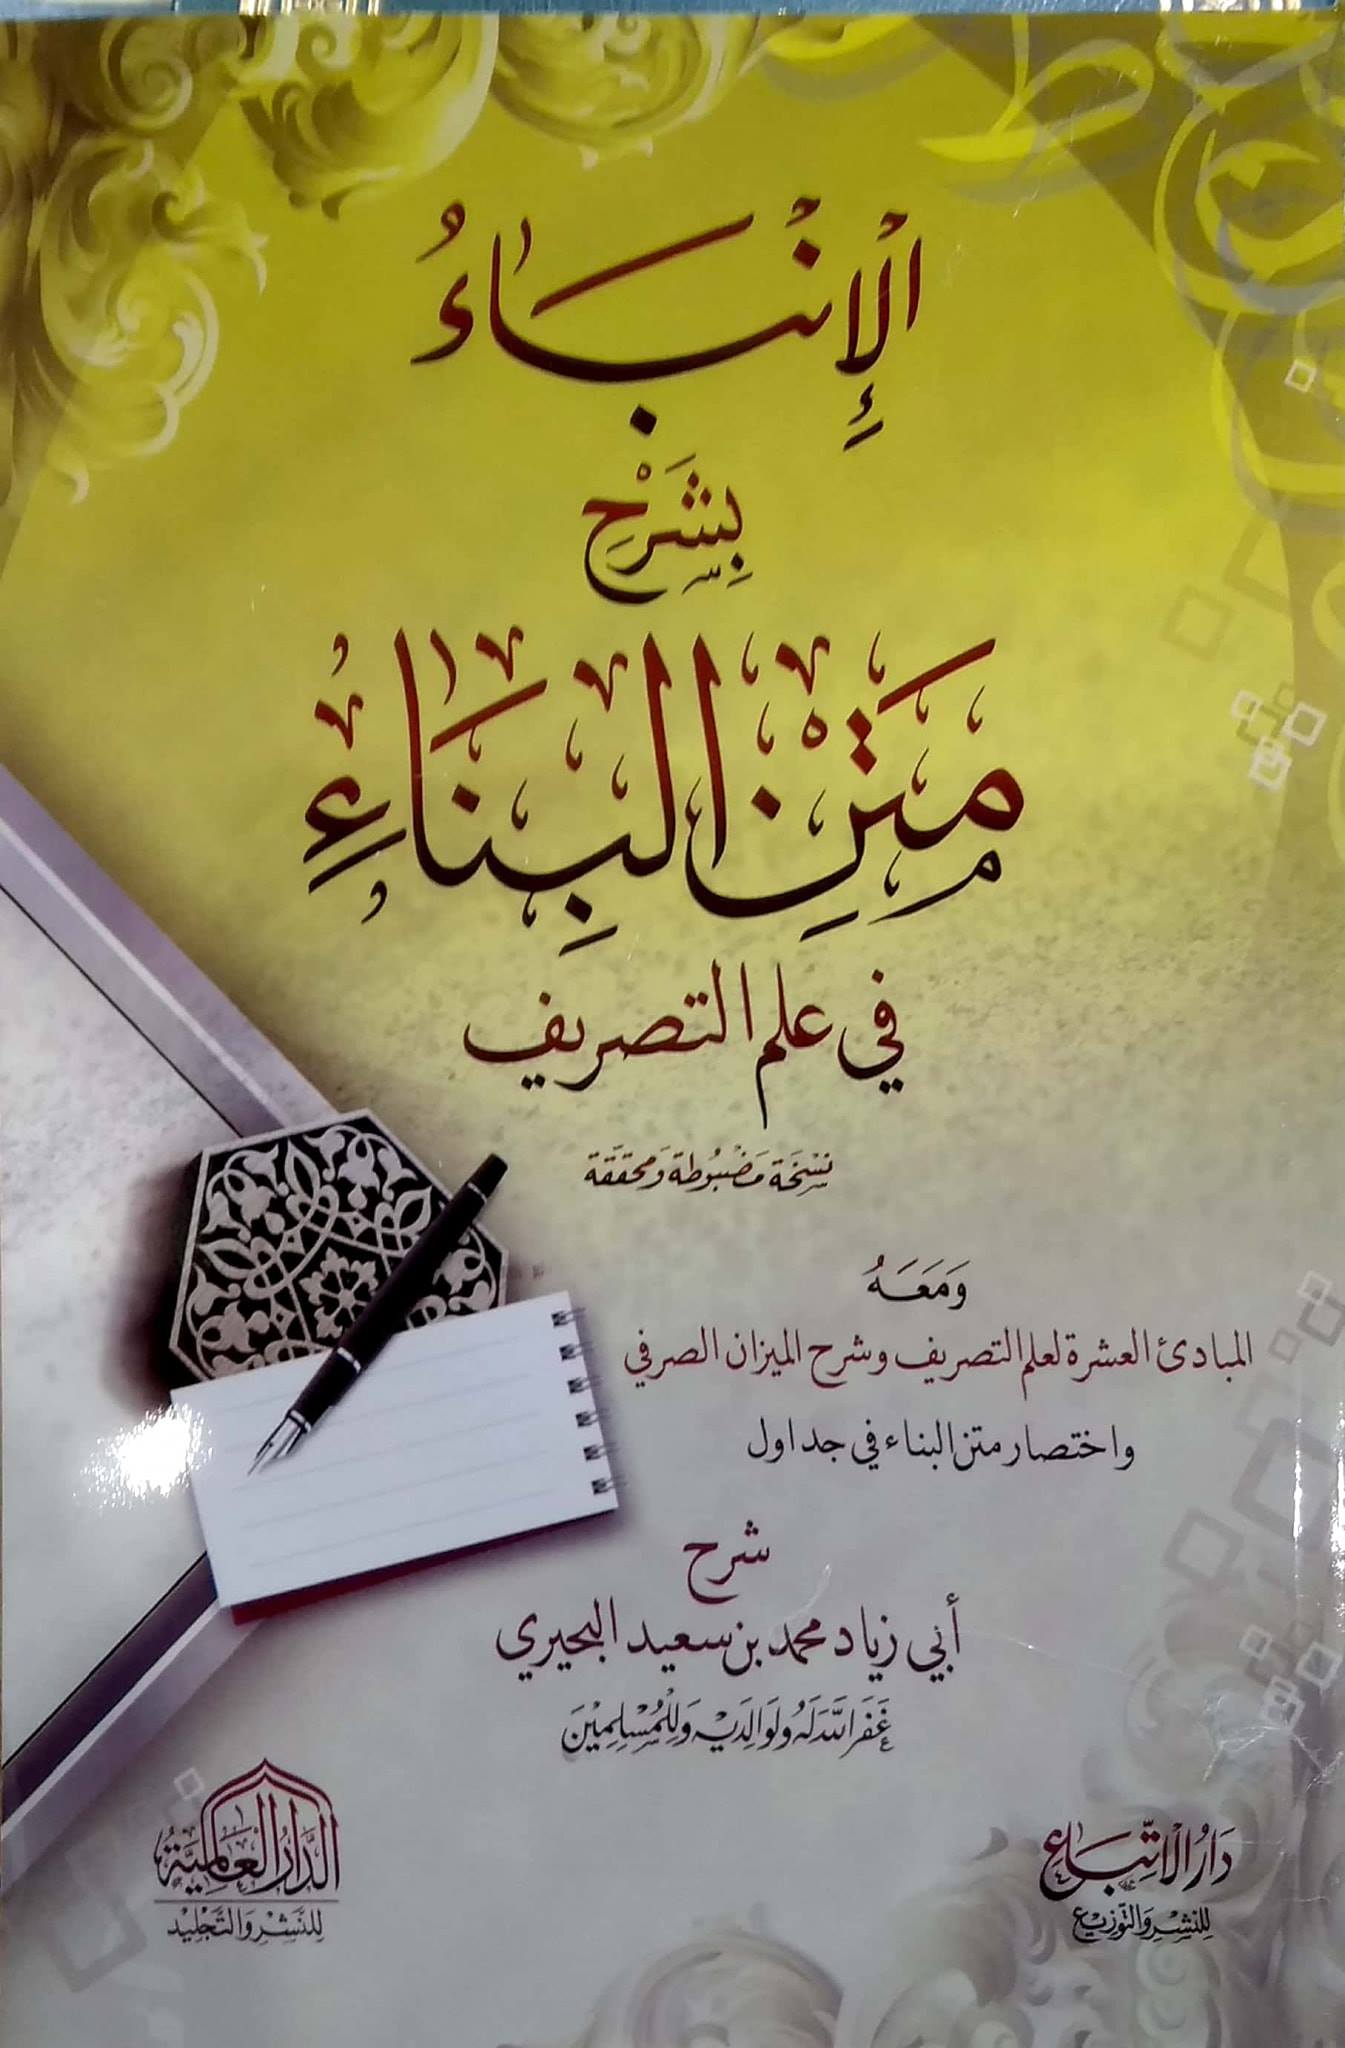 الْإِنْبَاءُ
بِشَرْحِ
مَتْنِ الْبِنَاءِ
في علم التصريف
نسْخَة مَضْبُوطة وَمحققة
وَمَعَهُ
المبادئ العشرة لعلم التصريف وشرح الميزان الصرفي
واختصار متن البناء في جداول
شرح
أبي زياد محمد بن سعيد البحيري
غَفَرَ اللَّهُ لَهُ وَلِوَالِدَيْهِ وَلِلْمُسْلِمِيْنَ
دَارُ الِاتِّبَاعِ
لِلنَّشْرِ وَالتَّوْزِيْعِ
الدَّارُ الْعَالَمِيَّةُ
لِلنَّشْرِ وَالتَّجْلِيْدِ